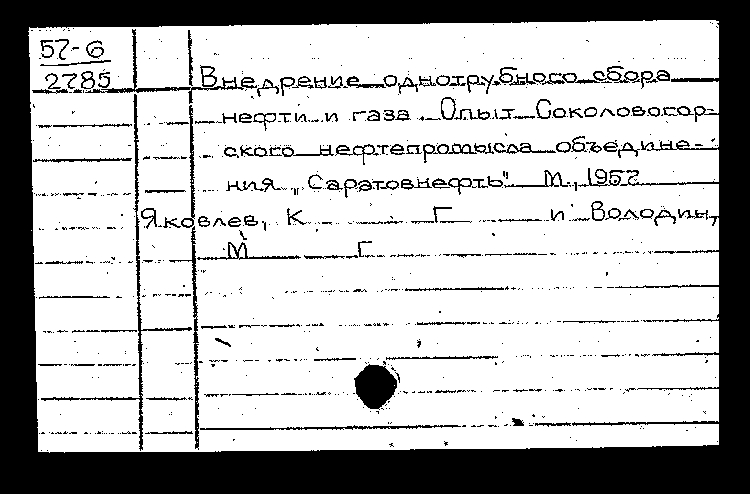 57-6
2785
Внедрение однотрубного сбора
нефти и газа. Опыт Соколовогор-
ского нефтепромысла объедине-
ния „Саратовнефть". М., 1957
Яковлев, К Г и Володин,
М Г